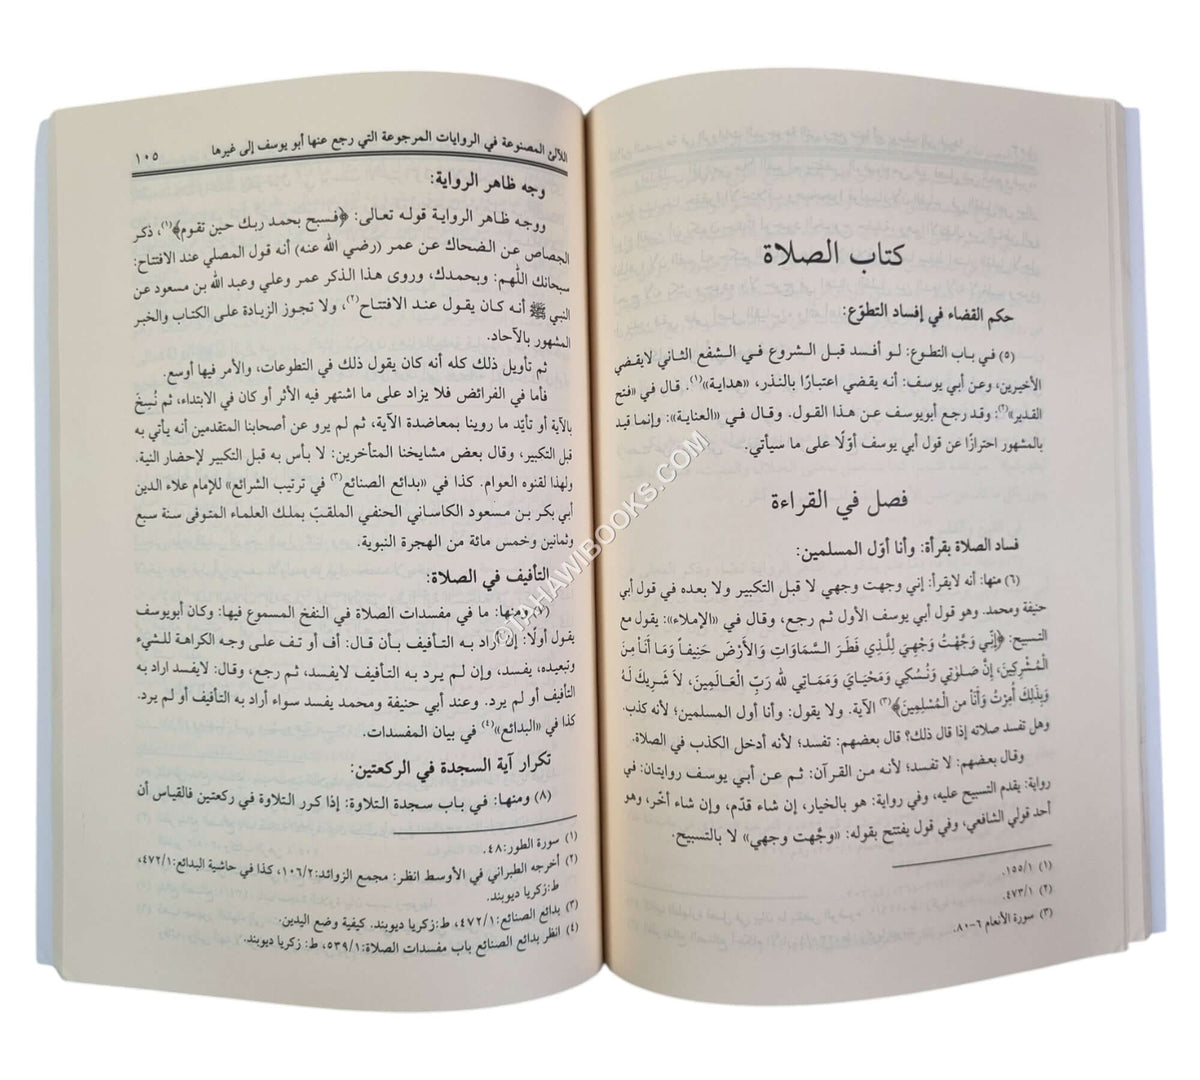 كتاب الصلاة
حكم القضاء في إفساد التطوّع:
(٥) في باب التطوع: لو أفسد قبل الشروع في الشفع الثاني لايقضي
الأخيرين، وعن أبي يوسف: أنه يقضي اعتبارًا بالنذر، «هداية»(١). قال في «فتح
القدير»(٢): وقد رجع أبويوسف عن هذا القول. وقال في «العناية»: وإنما قيد
بالمشهور احترازًا عن قول أبي يوسف أوّلًا على ما سيأتي.
فصل في القراءة
فساد الصلاة بقرأة: وأنا أوّل المسلمين:
(٦) منها: أنه لايقرأ: إني وجهت وجهي لا قبل التكبير ولا بعده في قول أبي
حنيفة ومحمد. وهو قول أبي يوسف الأول ثم رجع، وقال في «الإملاء»: يقول مع
التسبيح: ﴿إِنِّي وَجَّهْتُ وَجْهِيَ لِلَّذِي فَطَرَ السَّمَاوَاتِ وَالأَرْضَ حَنِيفاً وَمَا أَنَا مِنَ
الْمُشْرِكِينَ، إِنَّ صَلوٰتِي وَنُسُكِي وَمَحْيَايَ وَمَمَاتِي لله رَبِّ الْعَالَمِينَ، لاَ شَرِيكَ لَهُ
وَبِذَلِكَ أُمِرْتُ وَأَنَاْ من الْمُسْلِمِينَ﴾(٣) الآية. ولا يقول: وأنا أول المسلمين؛ لأنه كذب.
وهل تفسد صلاته إذا قال ذلك؟ قال بعضهم: تفسد؛ لأنه أدخل الكذب في الصلاة.
وقال بعضهم: لا تفسد؛ لأنه من القرآن: ثم عن أبي يوسف روايتان: في
رواية: يقدم التسبيح عليه، وفي رواية: هو بالخيار، إن شاء قدّم، وإن شاء أخّر، وهو
أحد قولي الشافعي، وفي قول يفتتح بقوله: «وجَّهت وجهي» لا بالتسبيح.
(١) ١/١٥٥.
(٢) ١/٤٧٣.
(٣) سورة الأنعام ٦-٨٠.
اللآلئ المصنوعة في الروايات المرجوعة التي رجع عنها أبو يوسف إلى غيرها ١٠٥
وجه ظاهر الرواية:
ووجه ظاهر الرواية قوله تعالى: ﴿فسبح بحمد ربك حين تقوم﴾(١)، ذكر
الجصاص عن الضحاك عن عمر (رضي الله عنه) أنه قول المصلي عند الافتتاح:
سبحانك اللّٰهم: وبحمدك، وروى هذا الذكر عمر وعلي وعبد الله بن مسعود عن
النبي ﷺ أنه كان يقول عند الافتتاح(٢)، ولا تجوز الزيادة على الكتاب والخبر
المشهور بالآحاد.
ثم تأويل ذلك كله أنه كان يقول ذلك في التطوعات، والأمر فيها أوسع.
فأما في الفرائض فلا يزاد على ما اشتهر فيه الأثر أو كان في الابتداء، ثم نُسِخَ
بالآية أو تأيّد ما روينا بمعاضدة الآية، ثم لم يرو عن أصحابنا المتقدمين أنه يأتي به
قبل التكبير، وقال بعض مشايخنا المتأخرين: لا بأس به قبل التكبير لإحضار النية.
ولهذا لقنوه العوام. كذا في «بدائع الصنائع(٣) في ترتيب الشرائع» للإمام علاء الدين
أبي بكر بن مسعود الكاساني الحنفي الملقبّ بملك العلماء المتوفى سنة سبع
وثمانين وخمس مائة من الهجرة النبوية.
التأفيف في الصلاة:
ومنها: ما في مفسدات الصلاة في النفخ المسموع فيها: وكان أبويوسف
يقول أولًا: إن أراد به التأفيف بأن قال: أف أو تف على وجه الكراهة للشيء
وتبعيده، يفسد، وإن لم يرد به التأفيف لايفسد، ثم رجع، وقال: لايفسد اراد به
التأفيف أو لم يرد. وعند أبي حنيفة ومحمد يفسد سواء أراد به التأفيف أو لم يرد.
كذا في «البدائع»(٤) في بيان المفسدات.
تكرار آية السجدة في الركعتين:
(٨) ومنها: في باب سجدة التلاوة: إذا كرر التلاوة في ركعتين فالقياس أن
(١) سورة الطور:٤٨.
(٢) أخرجه الطبراني في الأوسط انظر: مجمع الزوائد:١٠٦/٢، كذا في حاشية البدائع:٤٧٢/١،
ط:زكريا ديوبند.
(٣) بدائع الصنائع:٤٧٢/١، ط:زكريا ديوبند. كيفية وضع اليدين.
(٤) انظر بدائع الصنائع باب مفسدات الصلاة:٥٣٩/١، ط: زكريا ديوبند.
©TAHAWIBOOKS.COM